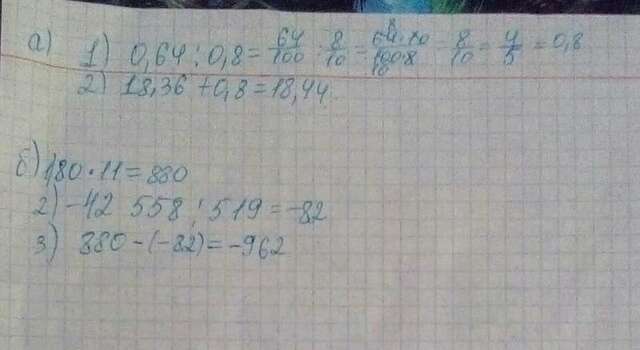 а) 1) 0,64 : 0,8 = 64/100 : 8/10 = 64·10/100·8 = 8/10 = 4/5 = 0,8
2) 18,36 + 0,8 = 18,44
б) 1) 80 · 11 = 880
2) -42 558 : 519 = -82
3) 880 - (-82) = -962